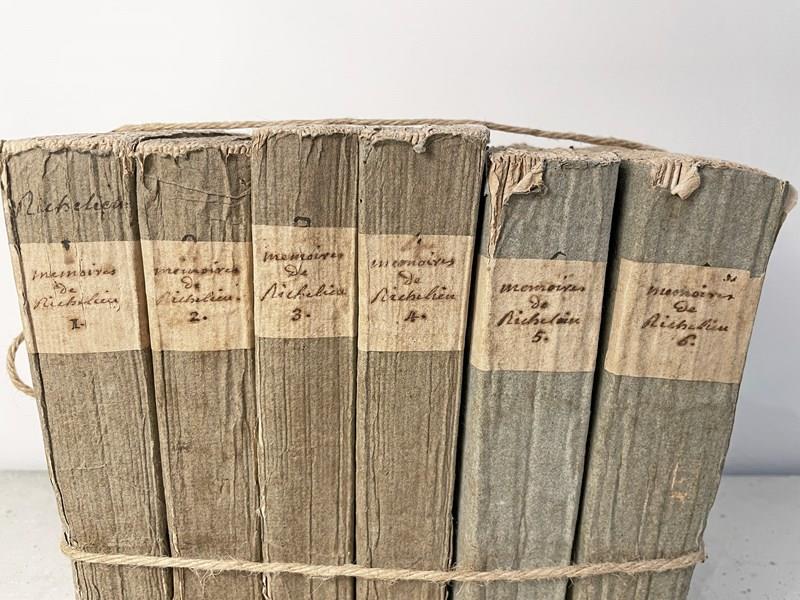 Richelieu
memoires
de
Richelieu
1.
memoires
de
Richelieu.
2.
memoires
de
Richelieu
3.
memoires
de
Richelieu
4.
memoires
de
Richelieu
5.
memoires
de
Richelieu
6.